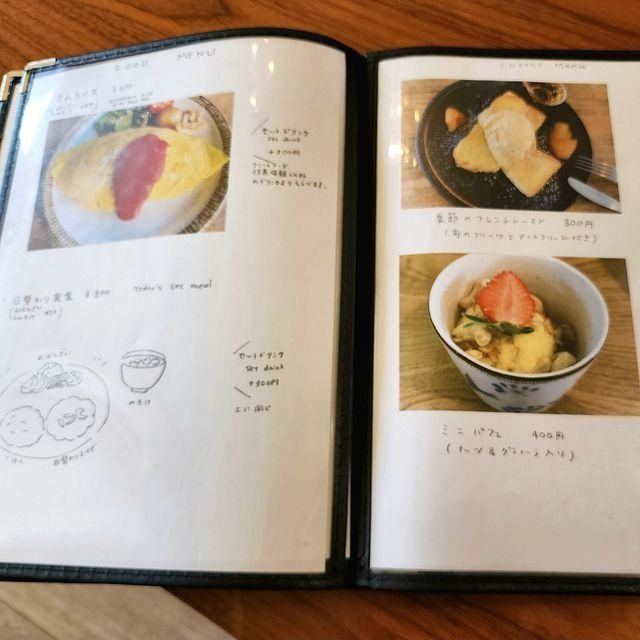 FOOD MENU
オムライス ¥800
セットドリンク
set drink
+300円
日替わり定食 ¥800 today's set meal
セットドリンク
set drink
+300円
上に同じ
おばんざい
みそ汁
ごはん
sweets menu
季節のフレンチトースト 800円
(旬のフルーツとアイスクリーム付き)
ミニパフェ 400円
(ナッツ&グラノーラ入り)